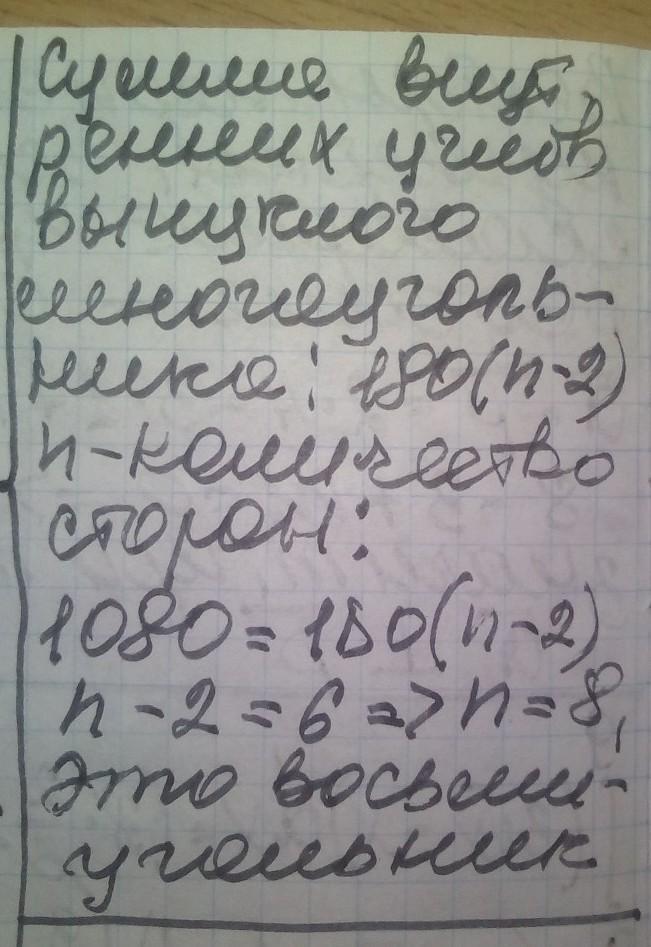 Сумма внут
ренних углов
выпуклого
многоуголь-
ника: 180(n-2)
n-количество
сторон:
1080=180(n-2)
n-2=6=>n=8,
это восьми-
угольник